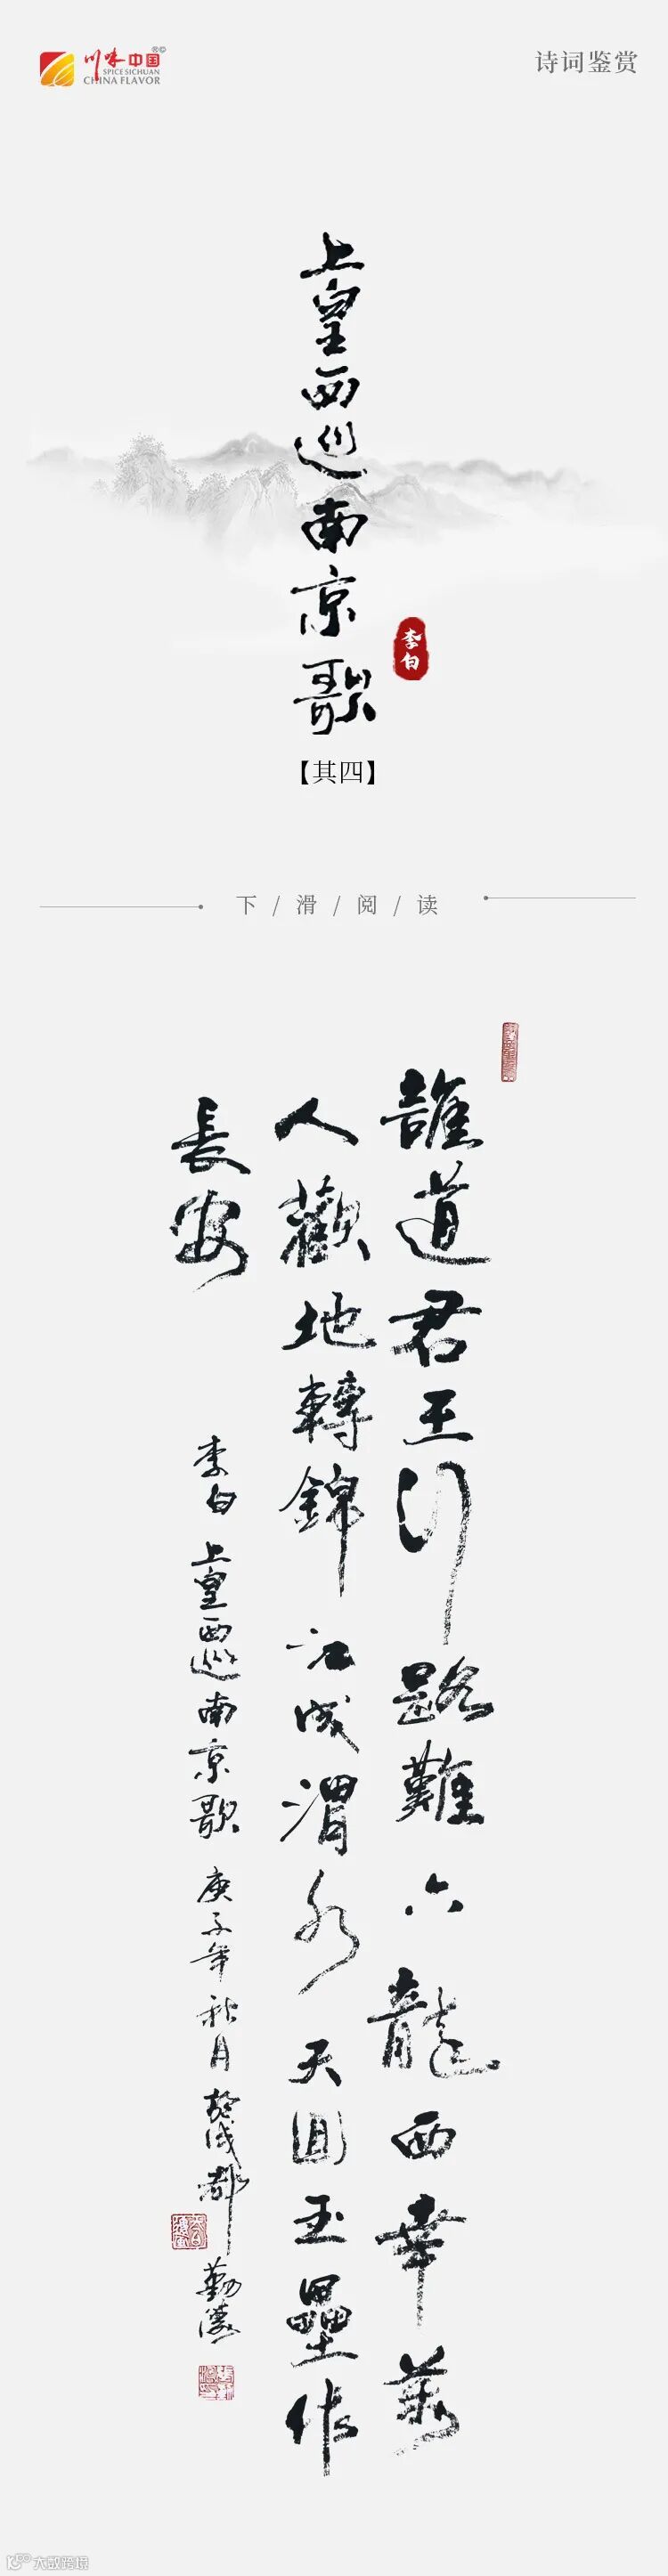 川味中国®©
SPICE SICHUAN
CHINA FLAVOR
诗词鉴赏
上皇西巡南京歌
李白
【其四】
下/滑/阅/读
誰道君王行路難六龍西幸萬
人觀地轉錦江成渭水天回玉壘作
長安
李白 上皇西巡南京歌 庚子年秋月於成都
大数跨境